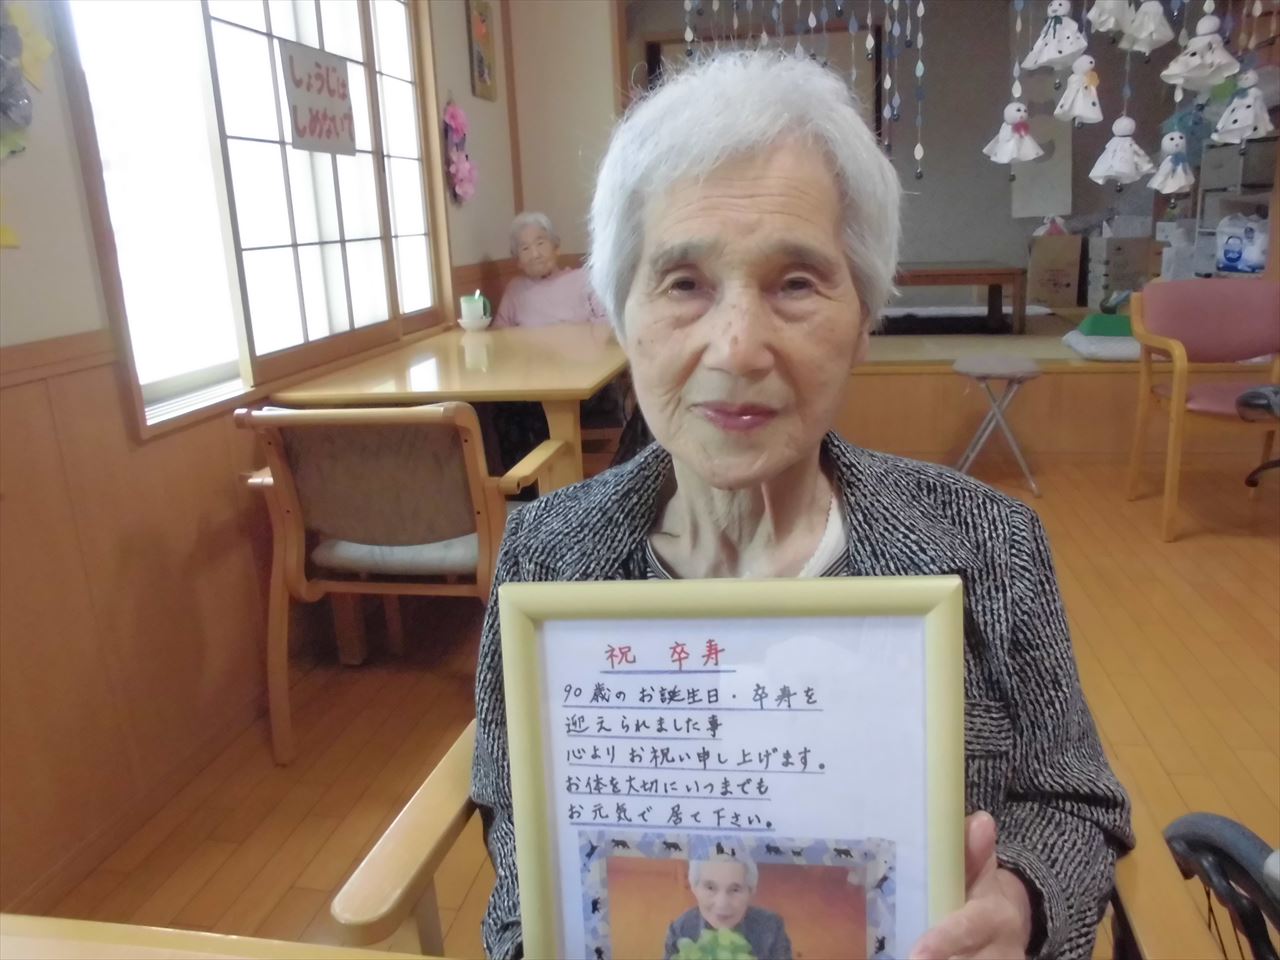 しょうじは
しめないで
祝 卒寿
90歳のお誕生日・卒寿を
迎えられました事
心よりお祝い申し上げます。
お体を大切にいつまでも
お元気で居て下さい。